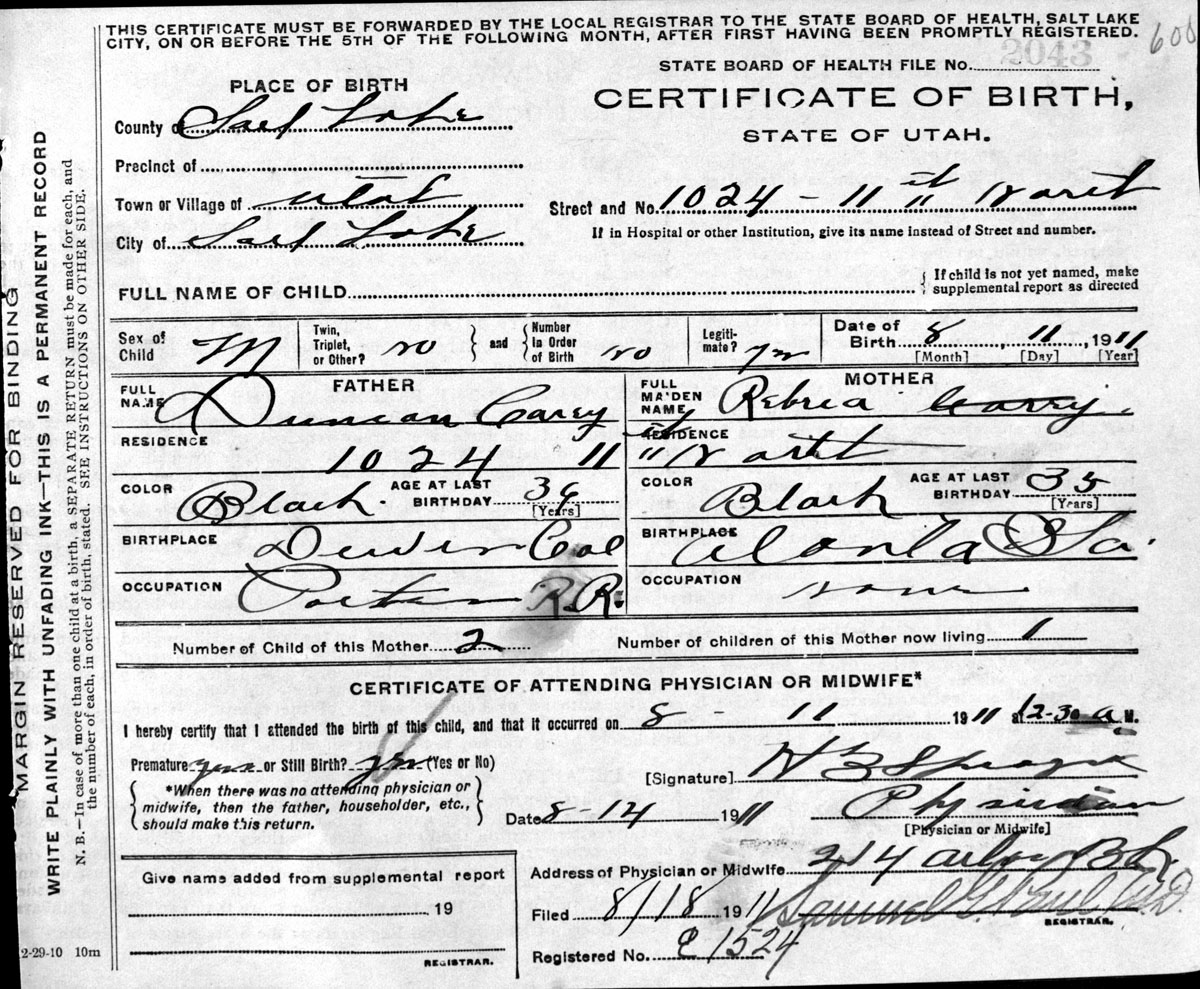 THIS CERTIFICATE MUST BE FORWARDED BY THE LOCAL REGISTRAR TO THE STATE BOARD OF HEALTH, SALT LAKE
CITY, ON OR BEFORE THE 5TH OF THE FOLLOWING MONTH, AFTER FIRST HAVING BEEN PROMPTLY REGISTERED.
600
2043
STATE BOARD OF HEALTH FILE No.
PLACE OF BIRTH
CERTIFICATE OF BIRTH,
STATE OF UTAH.
County of Salt Lake
Precinct of
Town or Village of Utah
Street and No. 1024 - 11
City of Salt Lake
If in Hospital or other Institution, give its name instead of Street and number.
FULL NAME OF CHILD
If child is not yet named, make
supplemental report as directed
Sex of Child M
Twin, Triplet, or Other? no
and Number in Order of Birth no
Legiti-mate? yes
Date of Birth 8, 11, 1911
[Month] [Day] [Year]
FATHER
FULL NAME Duncan Carey
MOTHER
FULL MAIDEN NAME Carey
RESIDENCE 1024 11
RESIDENCE
COLOR Black AGE AT LAST BIRTHDAY [Years]
COLOR Black AGE AT LAST BIRTHDAY 35 [Years]
BIRTHPLACE Col
BIRTHPLACE Ga.
OCCUPATION Porter R.R.
OCCUPATION none
Number of Child of this Mother 2
Number of children of this Mother now living 1
CERTIFICATE OF ATTENDING PHYSICIAN OR MIDWIFE*
I hereby certify that I attended the birth of this child, and that it occurred on 8 - 11 1911 at 12-30 a M.
Premature yes or Still Birth? yes (Yes or No)
*When there was no attending physician or
midwife, then the father, householder, etc.,
should make this return.
[Signature] H B Sprague
Date 8-14 1911
Physician
[Physician or Midwife]
Give name added from supplemental report
19
REGISTRAR.
Address of Physician or Midwife 214
Filed 8/18 1911
Samuel G. Paul M.D.
REGISTRAR.
Registered No. 1524
2-29-10 10m
MARGIN RESERVED FOR BINDING
WRITE PLAINLY WITH UNFADING INK—THIS IS A PERMANENT RECORD
N. B.—In case of more than one child at a birth, a SEPARATE RETURN must be made for each, and
the number of each, in order of birth, stated. SEE INSTRUCTIONS ON OTHER SIDE.